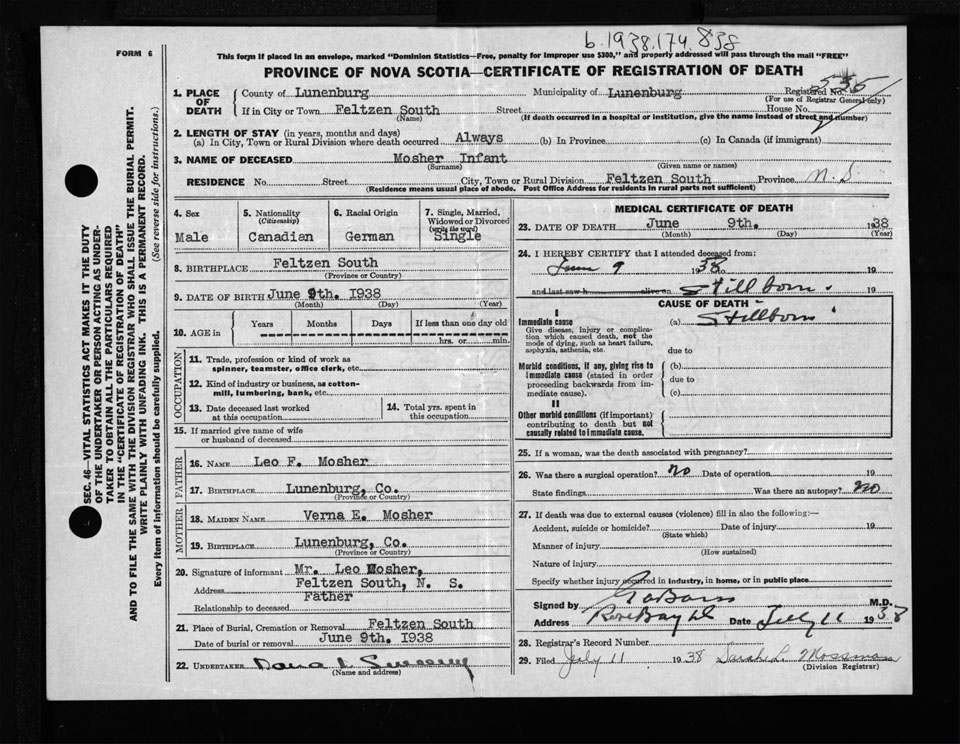 b.1938.174 838
FORM 6
This form if placed in an envelope, marked "Dominion Statistics—Free, penalty for improper use $300," and properly addressed will pass through the mail "FREE"
PROVINCE OF NOVA SCOTIA—CERTIFICATE OF REGISTRATION OF DEATH
SEC. 46—VITAL STATISTICS ACT MAKES IT THE DUTY
OF THE UNDERTAKER OR PERSON ACTING AS UNDER-
TAKER TO OBTAIN ALL THE PARTICULARS REQUIRED
IN THE "CERTIFICATE OF REGISTRATION OF DEATH"
AND TO FILE THE SAME WITH THE DIVISION REGISTRAR WHO SHALL ISSUE THE BURIAL PERMIT.
WRITE PLAINLY WITH UNFADING INK. THIS IS A PERMANENT RECORD.
Every item of information should be carefully supplied. (See reverse side for instructions.)
1. PLACE OF DEATH County of Lunenburg Municipality of Lunenburg Registered No. 535
(For use of Registrar General only)
If in City or Town Feltzen South Street House No.
(Name) (If death occurred in a hospital or institution, give the name instead of street and number)
2. LENGTH OF STAY (in years, months and days)
(a) In City, Town or Rural Division where death occurred Always (b) In Province (c) In Canada (if immigrant)
3. NAME OF DECEASED Mosher Infant
(Surname) (Given name or names)
RESIDENCE No. Street City, Town or Rural Division Feltzen South Province N. S.
(Residence means usual place of abode. Post Office Address for residents in rural parts not sufficient)
4. Sex 5. Nationality (Citizenship) 6. Racial Origin 7. Single, Married, Widowed or Divorced (write the word)
Male Canadian German Single
8. BIRTHPLACE Feltzen South
(Province or Country)
9. DATE OF BIRTH June 9th. 1938
(Month) (Day) (Year)
10. AGE in Years Months Days If less than one day old
hrs. or min.
OCCUPATION
11. Trade, profession or kind of work as
spinner, teamster, office clerk, etc.
12. Kind of industry or business, as cotton-
mill, lumbering, bank, etc.
13. Date deceased last worked
at this occupation
14. Total yrs. spent in
this occupation
15. If married give name of wife
or husband of deceased
FATHER
16. NAME Leo F. Mosher
17. BIRTHPLACE Lunenburg, Co.
(Province or Country)
MOTHER
18. MAIDEN NAME Verna E. Mosher
19. BIRTHPLACE Lunenburg, Co.
(Province or Country)
20. Signature of informant Mr. Leo Mosher,
Address Feltzen South, N. S.
Relationship to deceased Father
21. Place of Burial, Cremation or Removal Feltzen South
Date of burial or removal June 9th. 1938
22. UNDERTAKER Dana
(Name and address)
MEDICAL CERTIFICATE OF DEATH
23. DATE OF DEATH June 9th. 1938
(Month) (Day) (Year)
24. I HEREBY CERTIFY that I attended deceased from:
June 9 1938 to 19
and last saw h alive on Stillborn 19
CAUSE OF DEATH
I
Immediate cause (a) Stillborn
Give disease, injury or complica-
tion which caused death, not the
mode of dying, such as heart failure,
asphyxia, asthenia, etc. due to
Morbid conditions, if any, giving rise to (b)
immediate cause (stated in order due to
proceeding backwards from im-
mediate cause). (c)
II
Other morbid conditions (if important)
contributing to death but not
causally related to immediate cause.
25. If a woman, was the death associated with pregnancy?
26. Was there a surgical operation? no Date of operation 19
State findings Was there an autopsy? no
27. If death was due to external causes (violence) fill in also the following:—
Accident, suicide or homicide? Date of injury 19
(State which)
Manner of injury
(How sustained)
Nature of injury
Specify whether injury occurred in industry, in home, or in public place
Signed by M.D.
Address Rose Bay Date July 11 1938
28. Registrar's Record Number
29. Filed July 11 1938 Sarah L. Mossman
(Division Registrar)